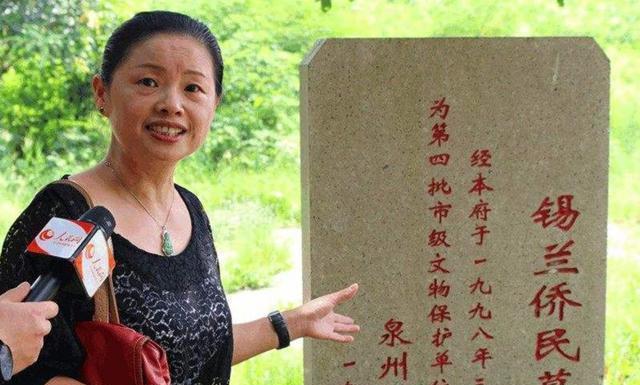 锡兰侨民
经本府于一九九八年
为第四批市级文物保护单位
泉州
一
人民网